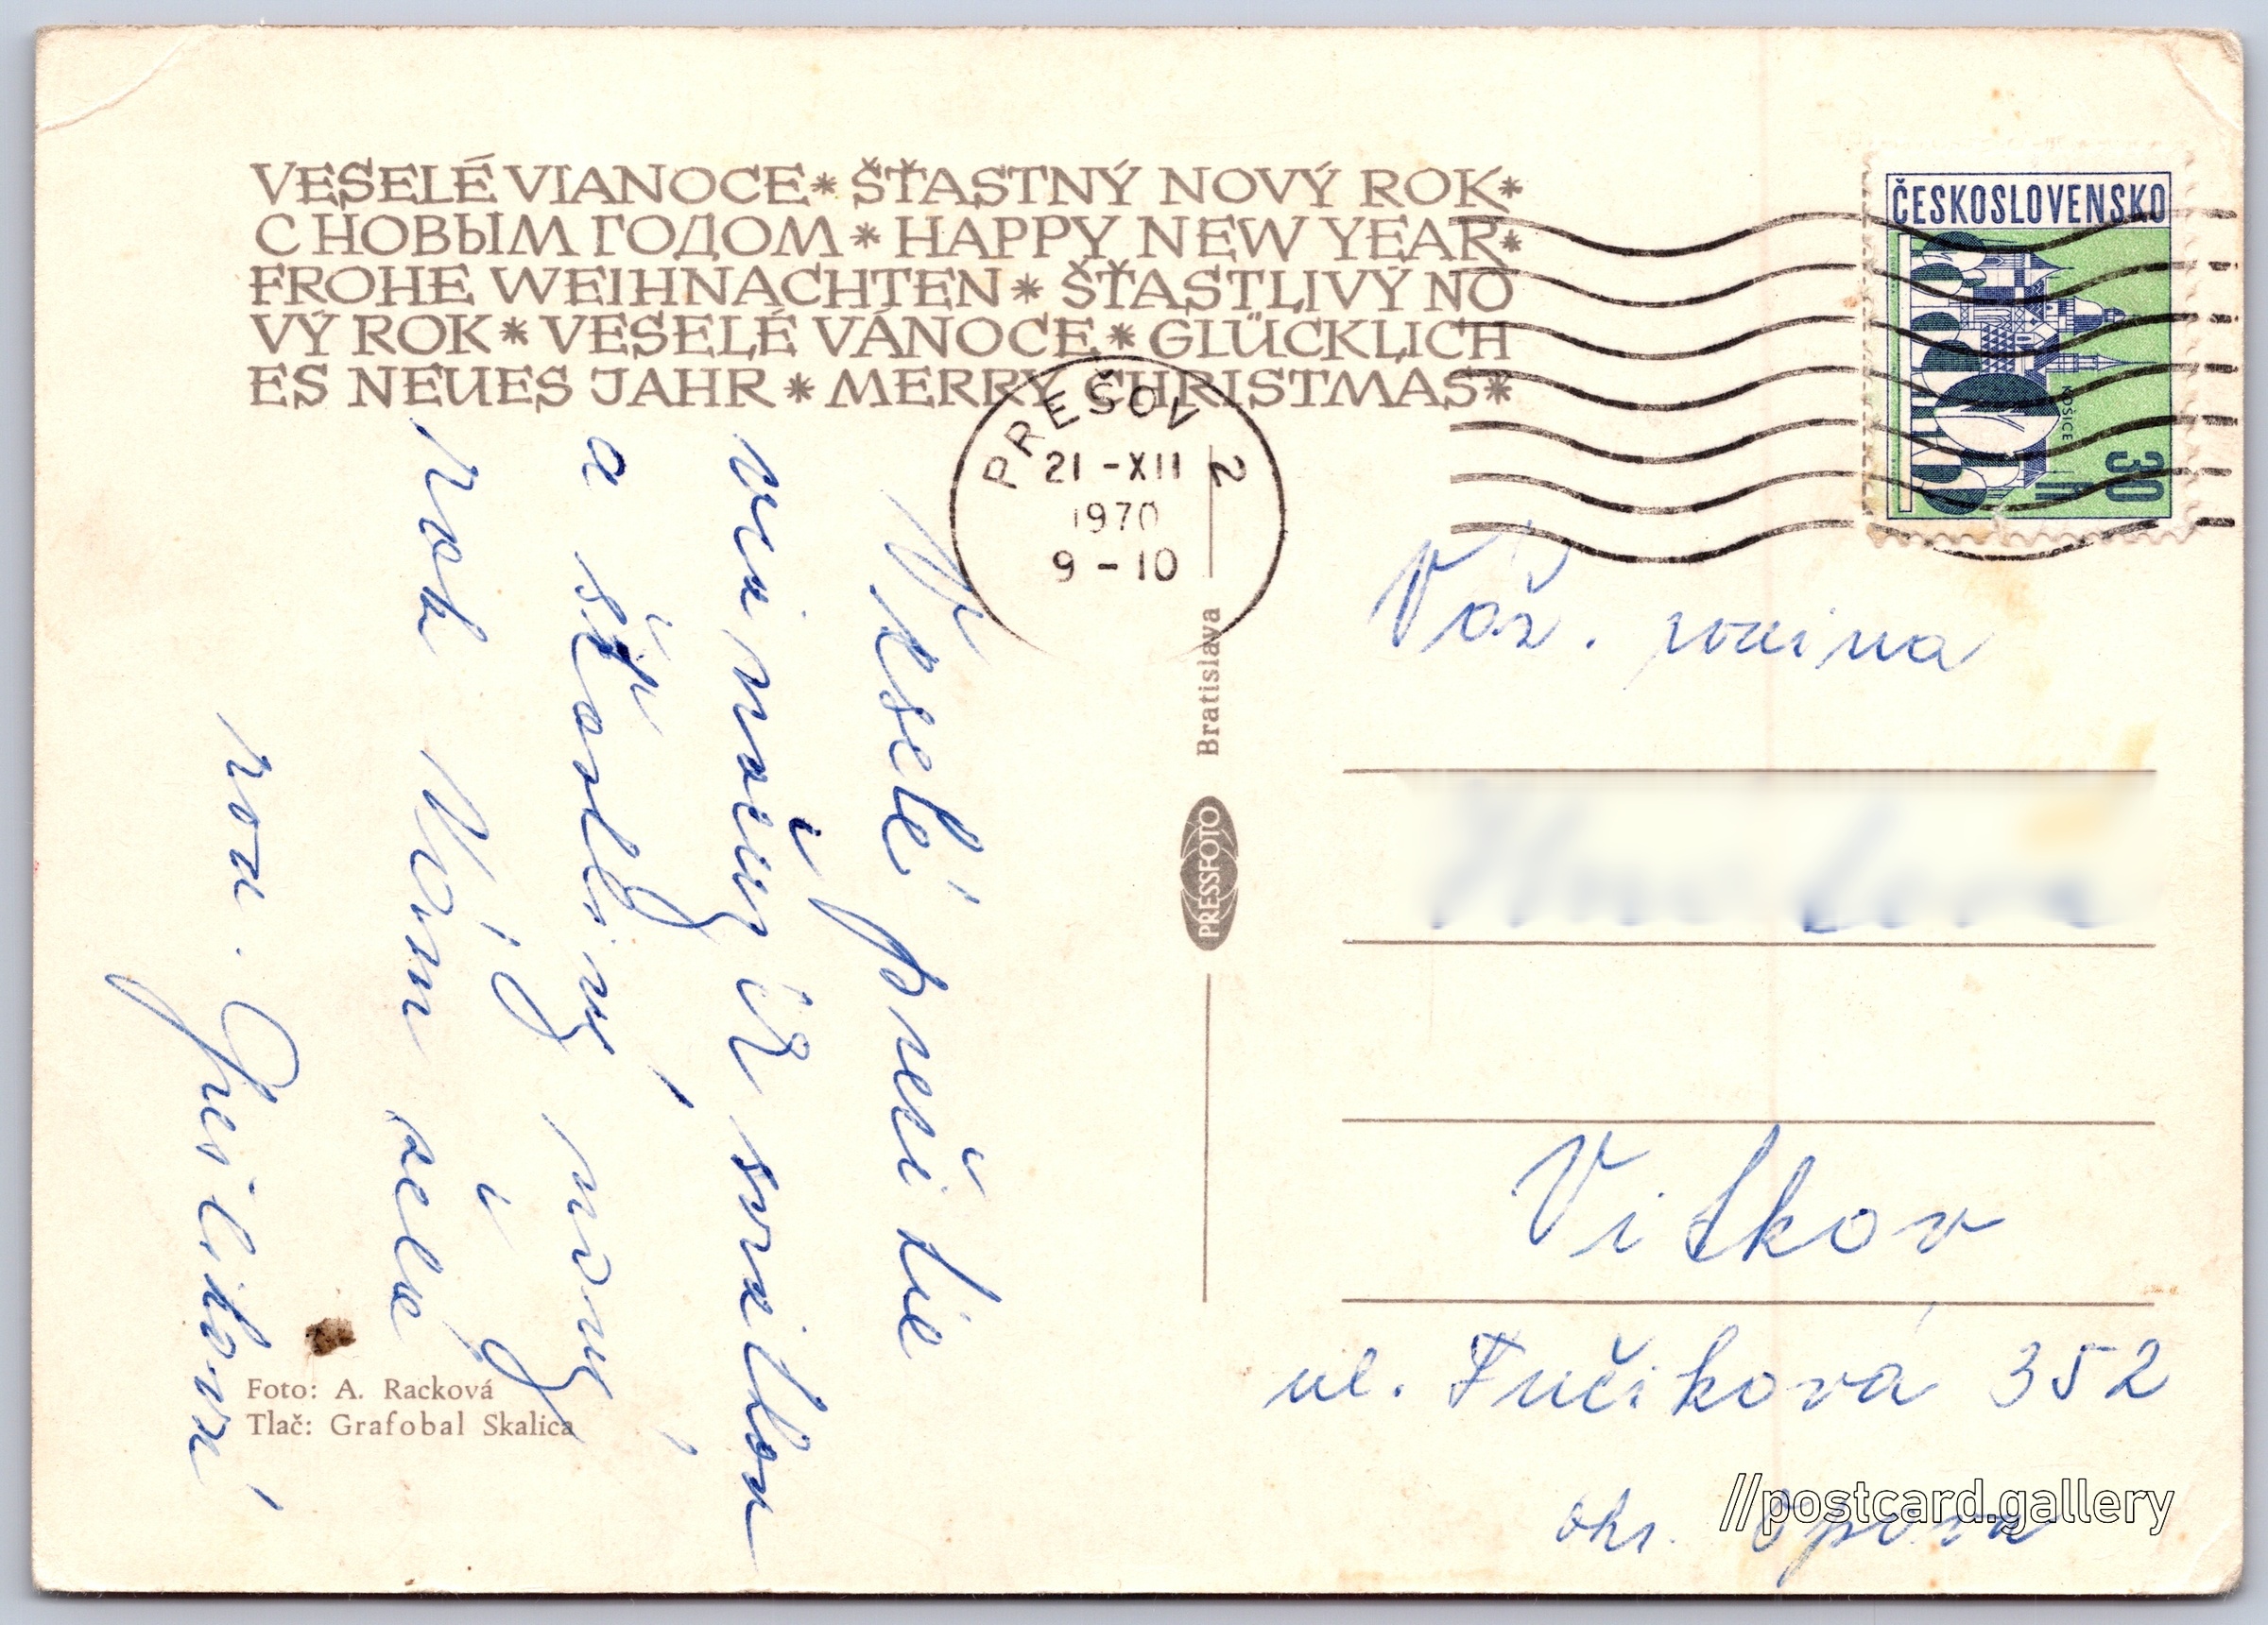 VESELÉ VIANOCE * ŠŤASTNÝ NOVÝ ROK *
С НОВЫМ ГОДОМ * HAPPY NEW YEAR *
FROHE WEIHNACHTEN * ŠŤASTLIVÝ NO
VÝ ROK * VESELÉ VÁNOCE * GLÜCKLICH
ES NEUES JAHR * MERRY CHRISTMAS *
PREŠOV 2
21 -XII
1970
9 - 10
ČESKOSLOVENSKO
KOŠICE
30 h
Veselé prežitie
vianočných sviatkov
a šťastlivý nový
rok Vám želá
rod.
Bratislava
PRESSFOTO
Váž. rodina
Vítkov
ul. Fučíková 352
okr. Opava
Foto: A. Racková
Tlač: Grafobal Skalica
//postcard.gallery